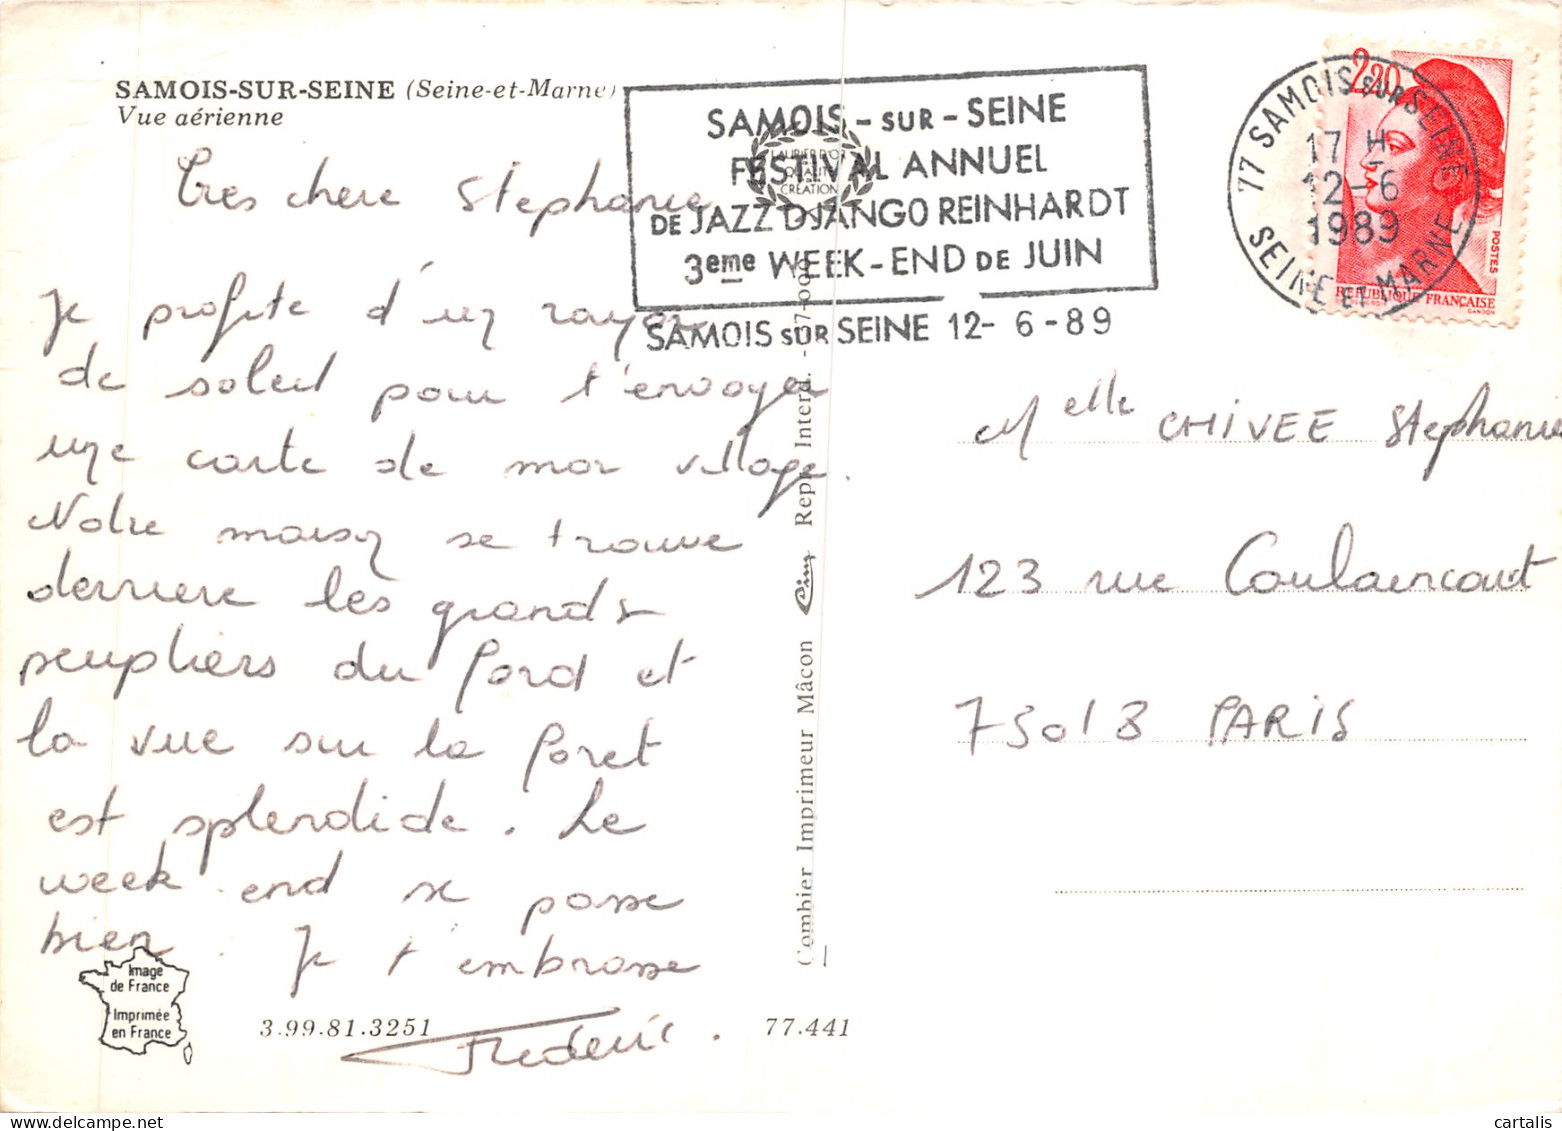 SAMOIS-SUR-SEINE (Seine-et-Marne)
Vue aérienne
SAMOIS - SUR - SEINE
FESTIVAL ANNUEL
DE JAZZ DJANGO REINHARDT
3eme WEEK-END DE JUIN
SAMOIS SUR SEINE 12- 6 -89
LAURIER D'OR
QUALITÉ
CRÉATION
77 SAMOIS SUR SEINE
17 H
12-6
1989
SEINE ET MARNE
2,20
POSTES
REPUBLIQUE FRANÇAISE
GANDON
Très chere Stephanie
Je profite d'un rayon
de soleil pour t'envoyer
une carte de mon village.
Notre maison se trouve
derriere les grands
peupliers du fond et
la vue sur la foret
est splendide. Le
week end se passe
bien. Je t'embrasse
Frederic.
Melle CHIVEE Stephanie
123 rue Caulaincourt
75018 PARIS
Combier Imprimeur Mâcon Cim Repr. Interd. -
Image
de France
Imprimée
en France
3.99.81.3251
77.441
cartalis